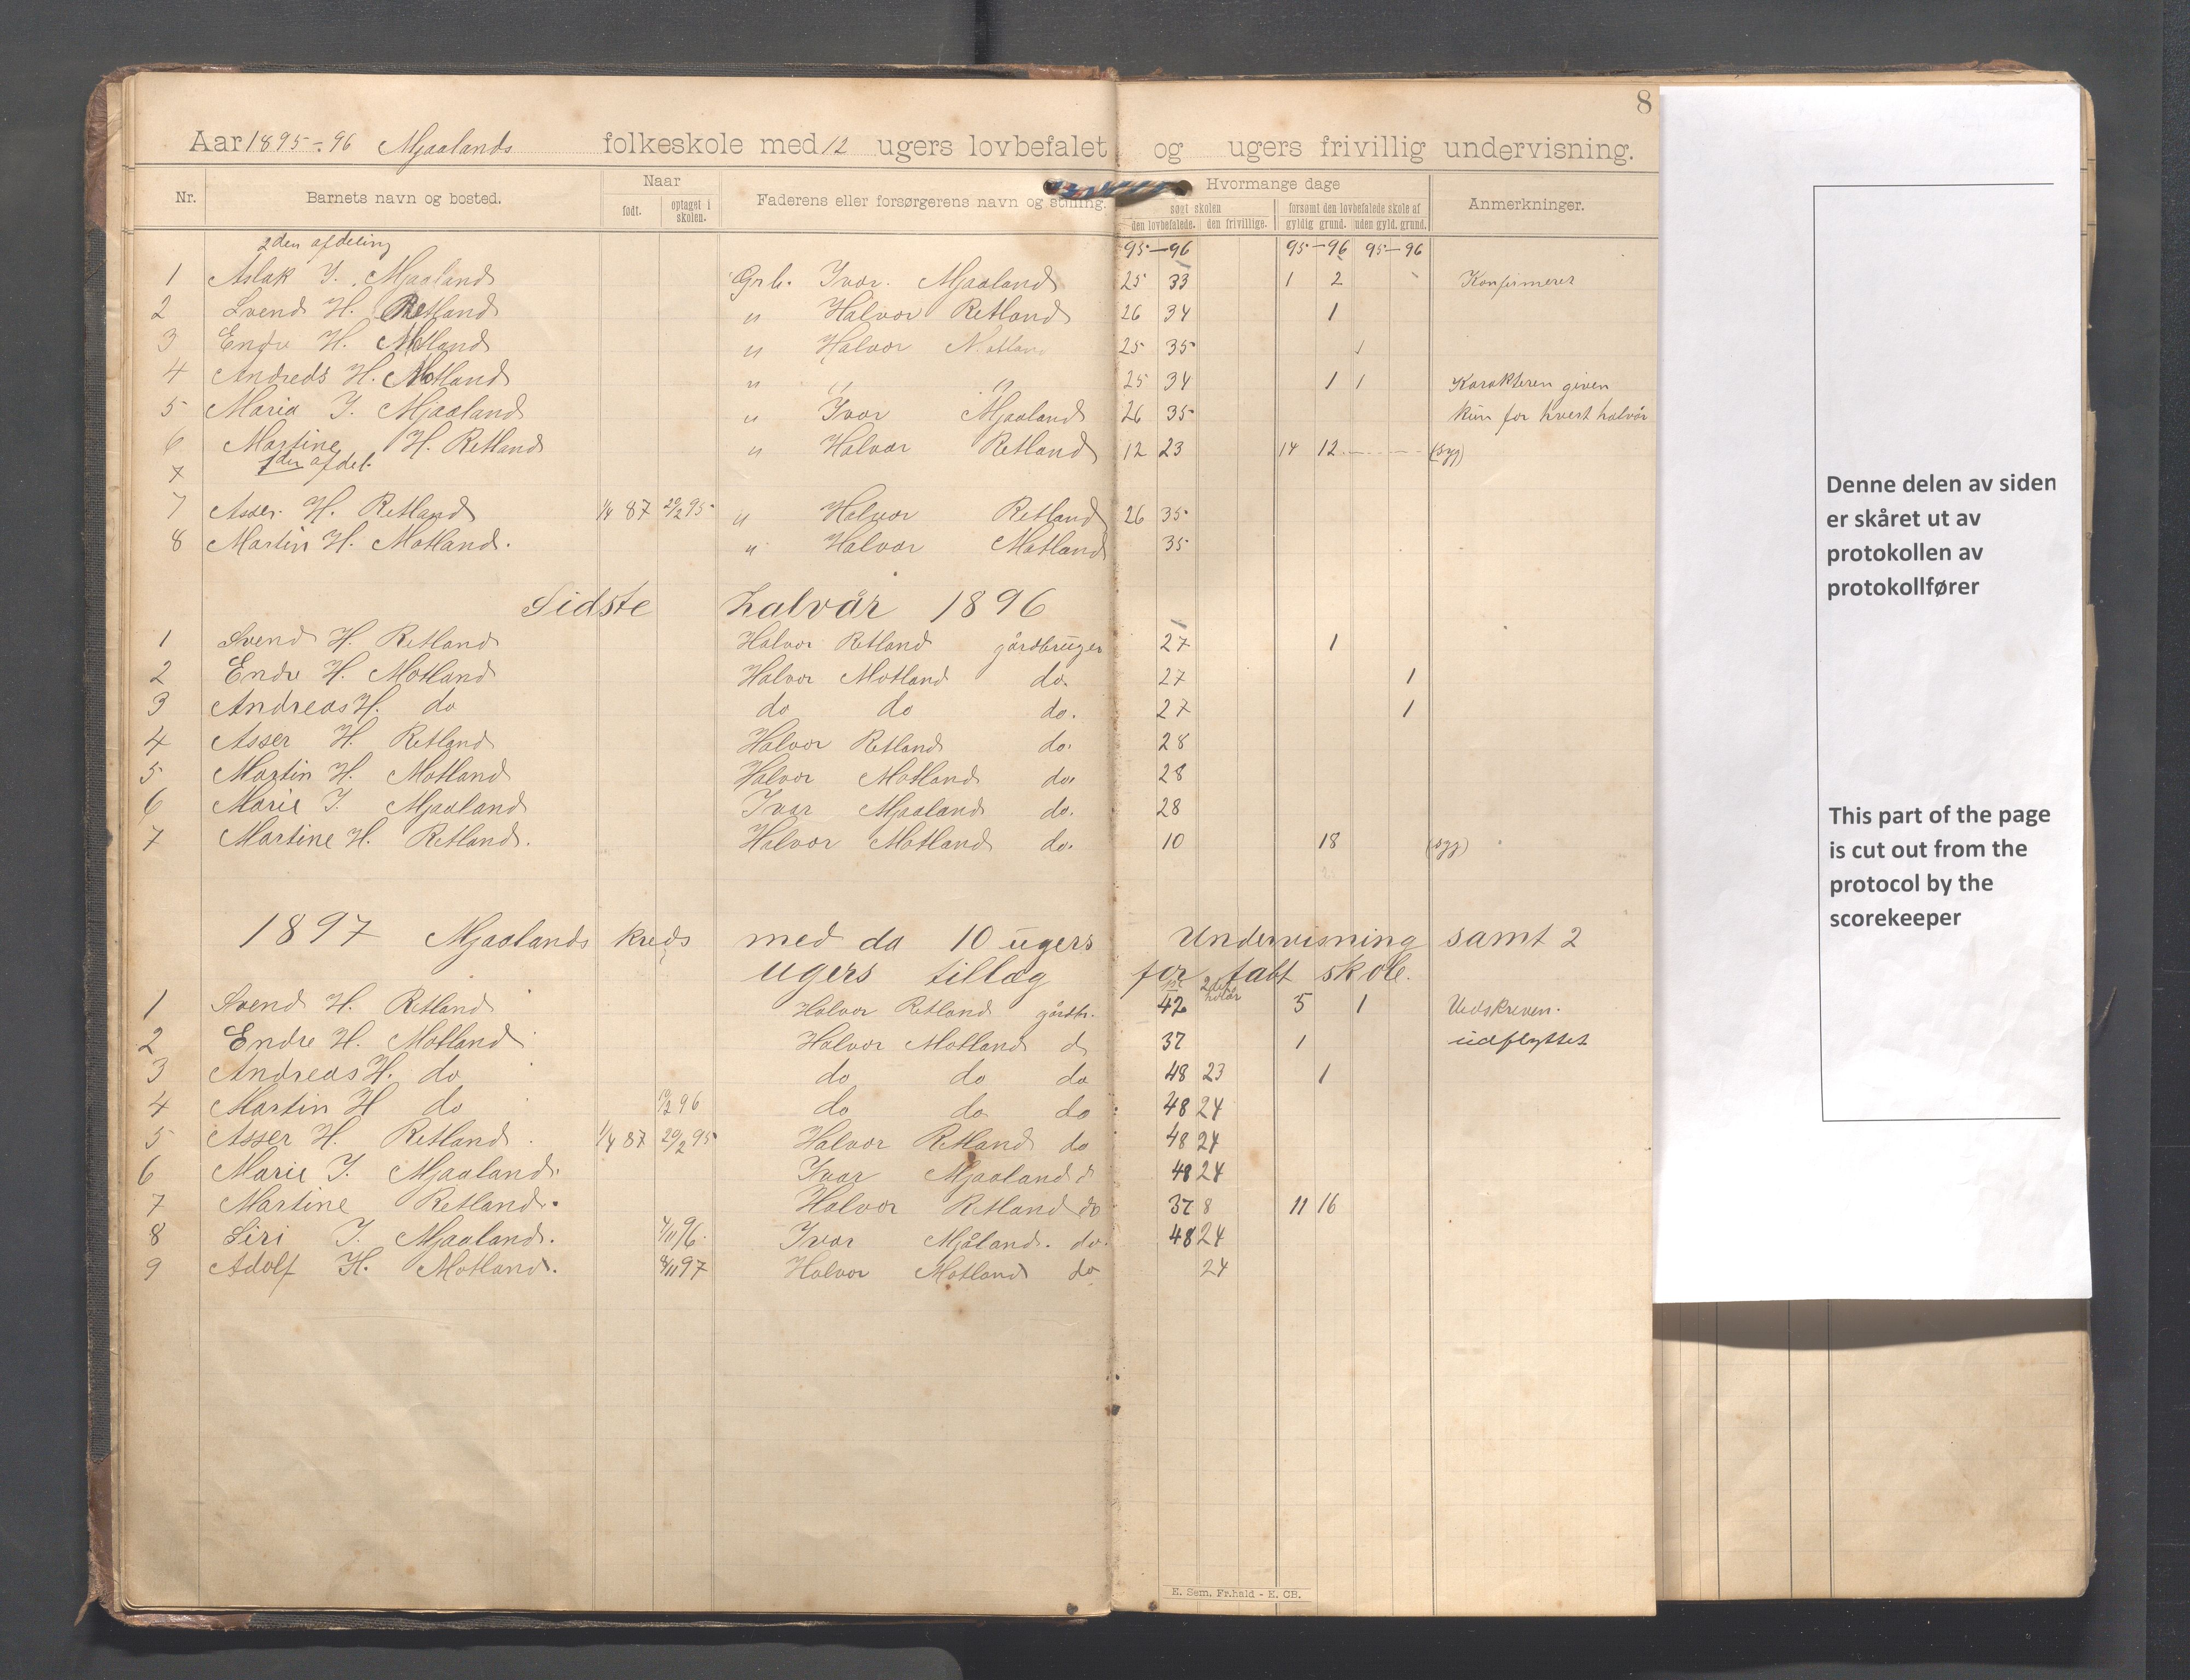 8
Aar 1895-96 Mjaalands folkeskole med 12 ugers lovbefalet og ugers frivillig undervisning.
Nr. Barnets navn og bosted. Naar født. optaget i skolen. Faderens eller forsørgerens navn og stilling. Hvormange dage søgt skolen den lovbefalede. den frivillige. forsømt den lovbefalede skole af gyldig grund. uden gyld. grund. Anmerkninger.
2den afdeling 95-96 95-96 95-96
1 Aslak I. Mjaaland Grb. Ivar Mjaaland 25 33 1 2 Konfirmeret
2 Svend H. Retland " Halvor Retland 26 34 1
3 Endre H. Motland " Halvor Motland 25 35 1
4 Andreas H. Motland " " " 25 34 1 1 Karakteren given
5 Maria I. Mjaaland " Ivar Mjaaland 26 35 kun for hvert halvår
6 Martine H. Retland " Halvor Retland 12 23 14 12 (syg)
7 1den afdel.
7 Asser H. Retland 1/4 87 20/2 95 " Halvor Retland 26 35
8 Martin H. Motland. " Halvor Motland 35
Sidste halvår 1896
1 Svend H. Retland Halvor Retland gårdbruger 27 1
2 Endre H. Motland Halvor Motland do. 27 1
3 Andreas H. do do do do. 27 1
4 Asser H. Retland Halvor Retland do. 28
5 Martin H. Motland Halvor Motland do. 28
6 Marie I. Mjaaland Ivar Mjaaland do. 28
7 Martine H. Retland. Halvor Motland do. 10 18 (syg)
1897 Mjaalands kreds med da 10 ugers Undervisning samt 2
ugers tillæg for tabt skole.
2det halår
1 Svend H. Retland Halvor Retland gårdbr. 42 5 1 Udskreven.
2 Endre H. Motland Halvor Motland d 37 1 udflyttet
3 Andreas H. do do do do 48 23 1
4 Martin H do 96 do do do 48 24
5 Asser H. Retland 1/4 87 20/2 95 Halvor Retland do 48 24
6 Marie I. Mjaaland. Ivar Mjaaland d 48 24
7 Martine Retland. Halvor Retland do 37 8 11 16
8 Siri I. Mjaaland. 4/11 96. Ivar Mjåland. do. 48 24
9 Adolf H. Motland. 97 Halvor Motland do 24
E. Sem, Fr.hald - E. CB.
Denne delen av siden
er skåret ut av
protokollen av
protokollfører
This part of the page
is cut out from the
protocol by the
scorekeeper